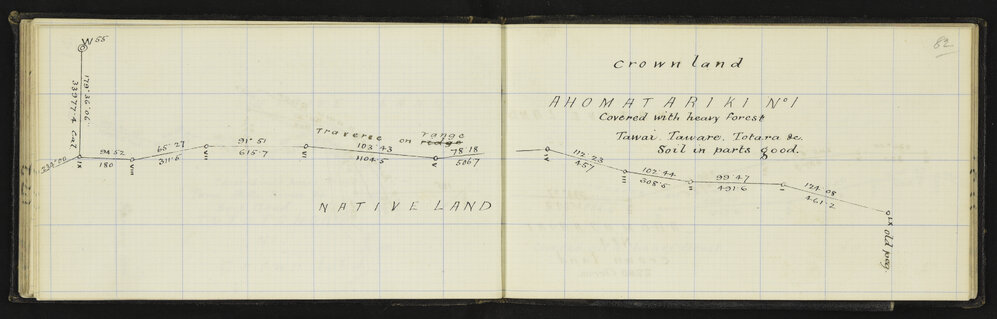 W 55
179° 36' 06"
33977.4 Cal
339.00
IX
94.52
180
VIII
65.27
311.5
VII
91.51
615.7
VI
Traverse on ridge range
103.43
1104.5
V
78.18
506.7
NATIVE LAND
82
Crown land
AHOMATARIKI No 1
Covered with heavy forest
Tawai, Taware, Totara &c.
Soil in parts good.
IV
112.23
457
III
102.44
308.5
II
99.47
491.6
I
124.08
461.2
IX old peg.